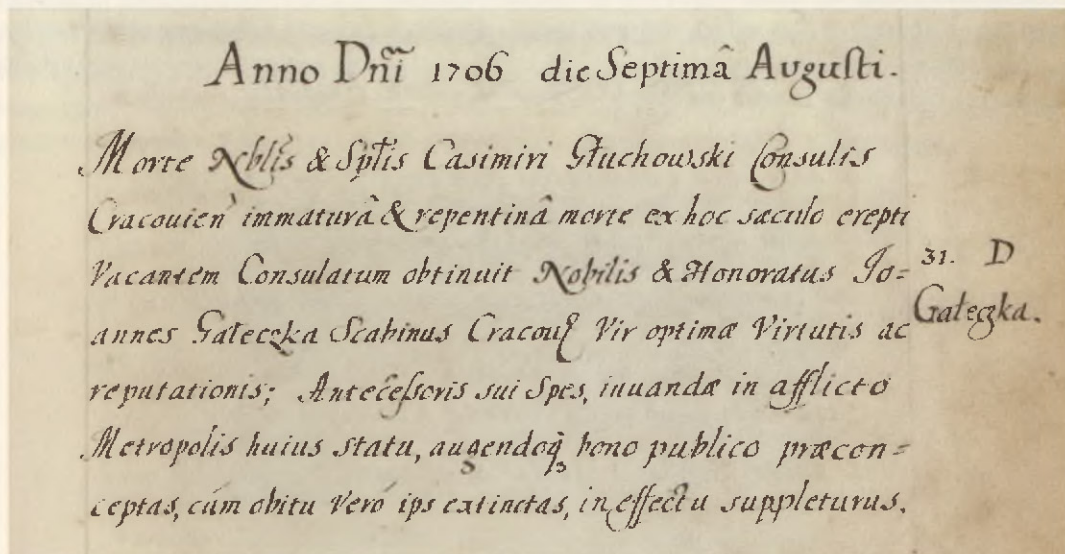 Anno Dñi 1706 die Septimâ Augusti.
Morte Nblis & Sptlis Casimiri Głuchowski Consulis
Cracouien immaturâ & repentinâ morte ex hoc sæculo erepti
Vacantem Consulatum obtinuit Nobilis & Honoratus Jo=
annes Gałeczka Scabinus Cracou Vir optimæ Virtutis ac
reputationis; Antecessoris sui Spes, iuuandæ in afflicto
Metropolis huius statu, augendoq bono publico præcon=
ceptas, cum obitu Vero ips extinctas, in effectu suppleturus.
31. D
Gałeczka.